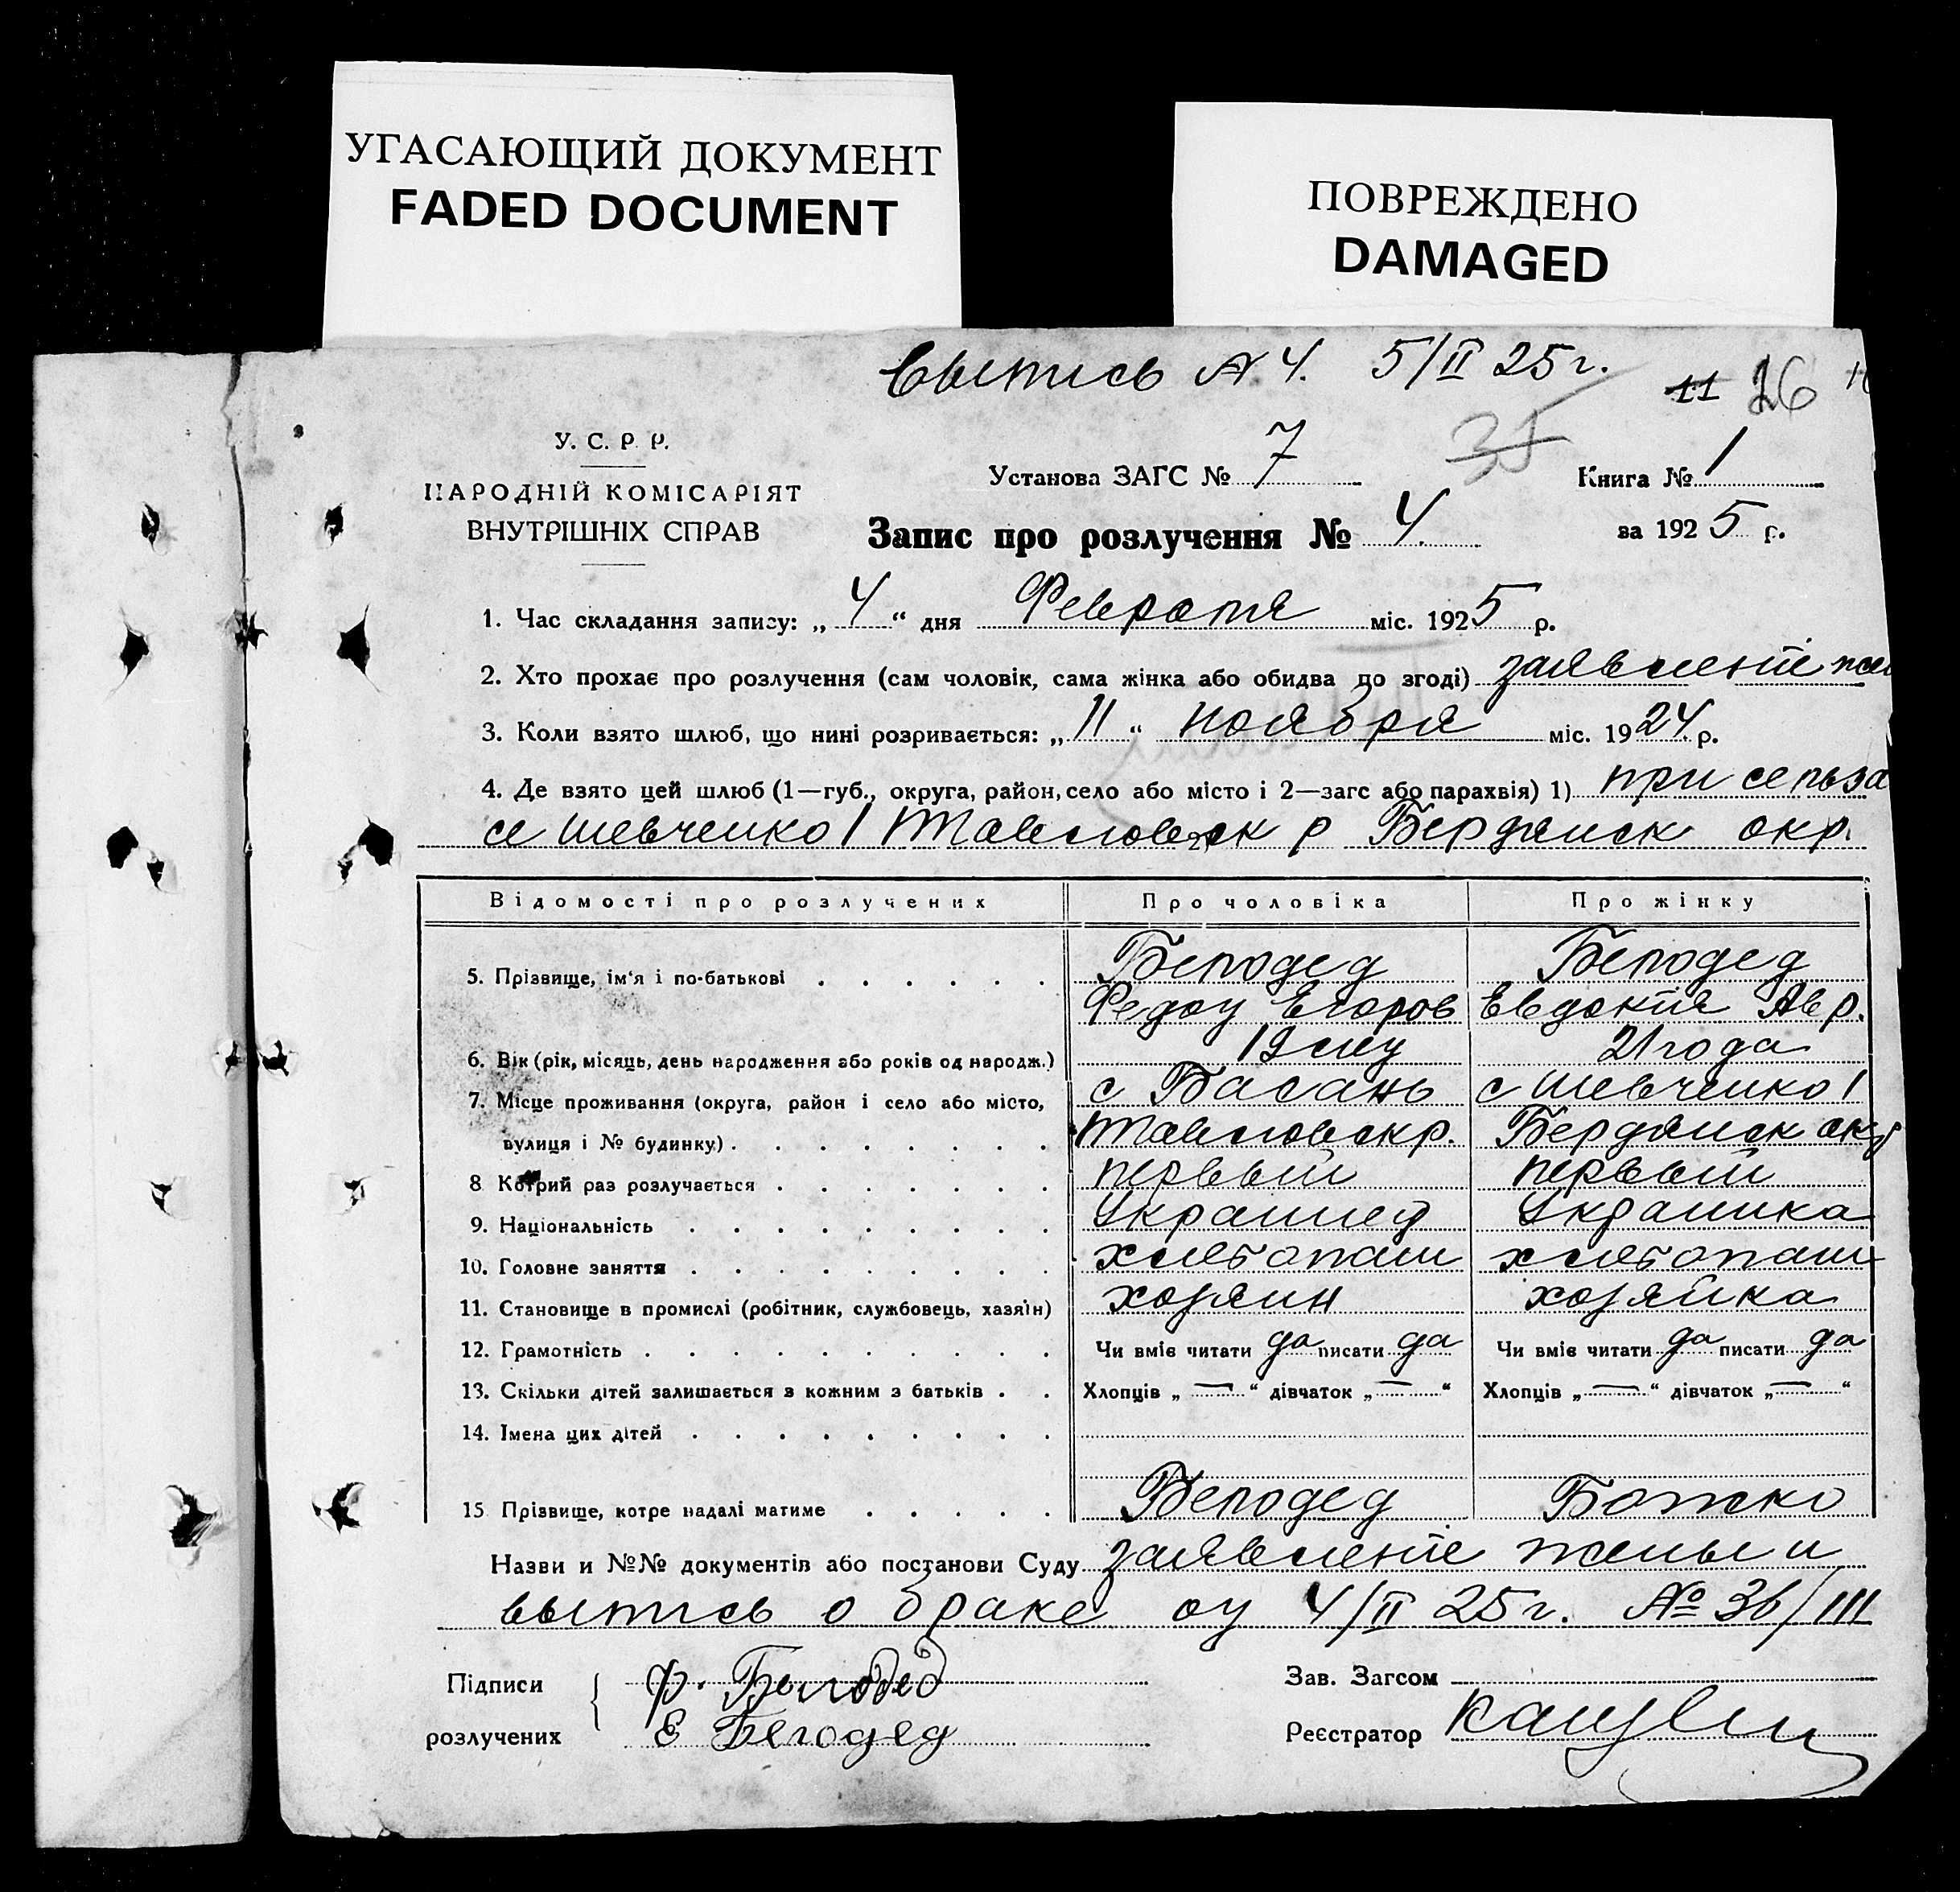 УГАСАЮЩИЙ ДОКУМЕНТ
FADED DOCUMENT
ПОВРЕЖДЕНО
DAMAGED
Выпись № 4. 5/II 25г.
11 26
35
У. С. Р. Р.
НАРОДНІЙ КОМІСАРІЯТ
ВНУТРІШНІХ СПРАВ
Установа ЗАГС № 7
Книга № 1
Запис про розлучення № 4.
за 1925 р.
1. Час складання запису: „4“ дня Февраля міс. 1925 р.
2. Хто прохає про розлучення (сам чоловік, сама жінка або обидва по згоді) заявление
3. Коли взято шлюб, що нині розривається: „11“ ноября міс. 1924 р.
4. Де взято цей шлюб (1—губ., округа, район, село або місто і 2—загс або парахвія) 1) при сельза
се Шевченко 1 р Бердянск окр.
Відомості про розлучених Про чоловіка Про жінку
5. Прізвище, ім'я і по-батькові Белодед Белодед
Федор Егоров Евдокия Авр.
6. Вік (рік, місяць, день народження або років од народж.) 19 лет 21 года
7. Місце проживання (округа, район і село або місто, с Басань с Шевченко 1
вулиця і № будинку) Бердянск окр
8 Котрий раз розлучається первый первый
9. Національність Украинец Украинка
10. Головне заняття хлебопаш хлебопаш
11. Становище в промислі (робітник, службовець, хазяїн) хозяин хозяйка
12. Грамотність Чи вміє читати да писати да Чи вміє читати да писати да
13. Скільки дітей залишається з кожним з батьків Хлопців „—“ дівчаток „—“ Хлопців „—“ дівчаток „—“
14. Імена цих дітей
15 Прізвище, котре надалі матиме Белодед Божко
Назви и №№ документів або постанови Суду заявление жены и
выпись о браке от 4/II 25г. № 36/III
Підписи
розлучених
Ф. Белодед
Е Белодед
Зав. Загсом
Реєстратор